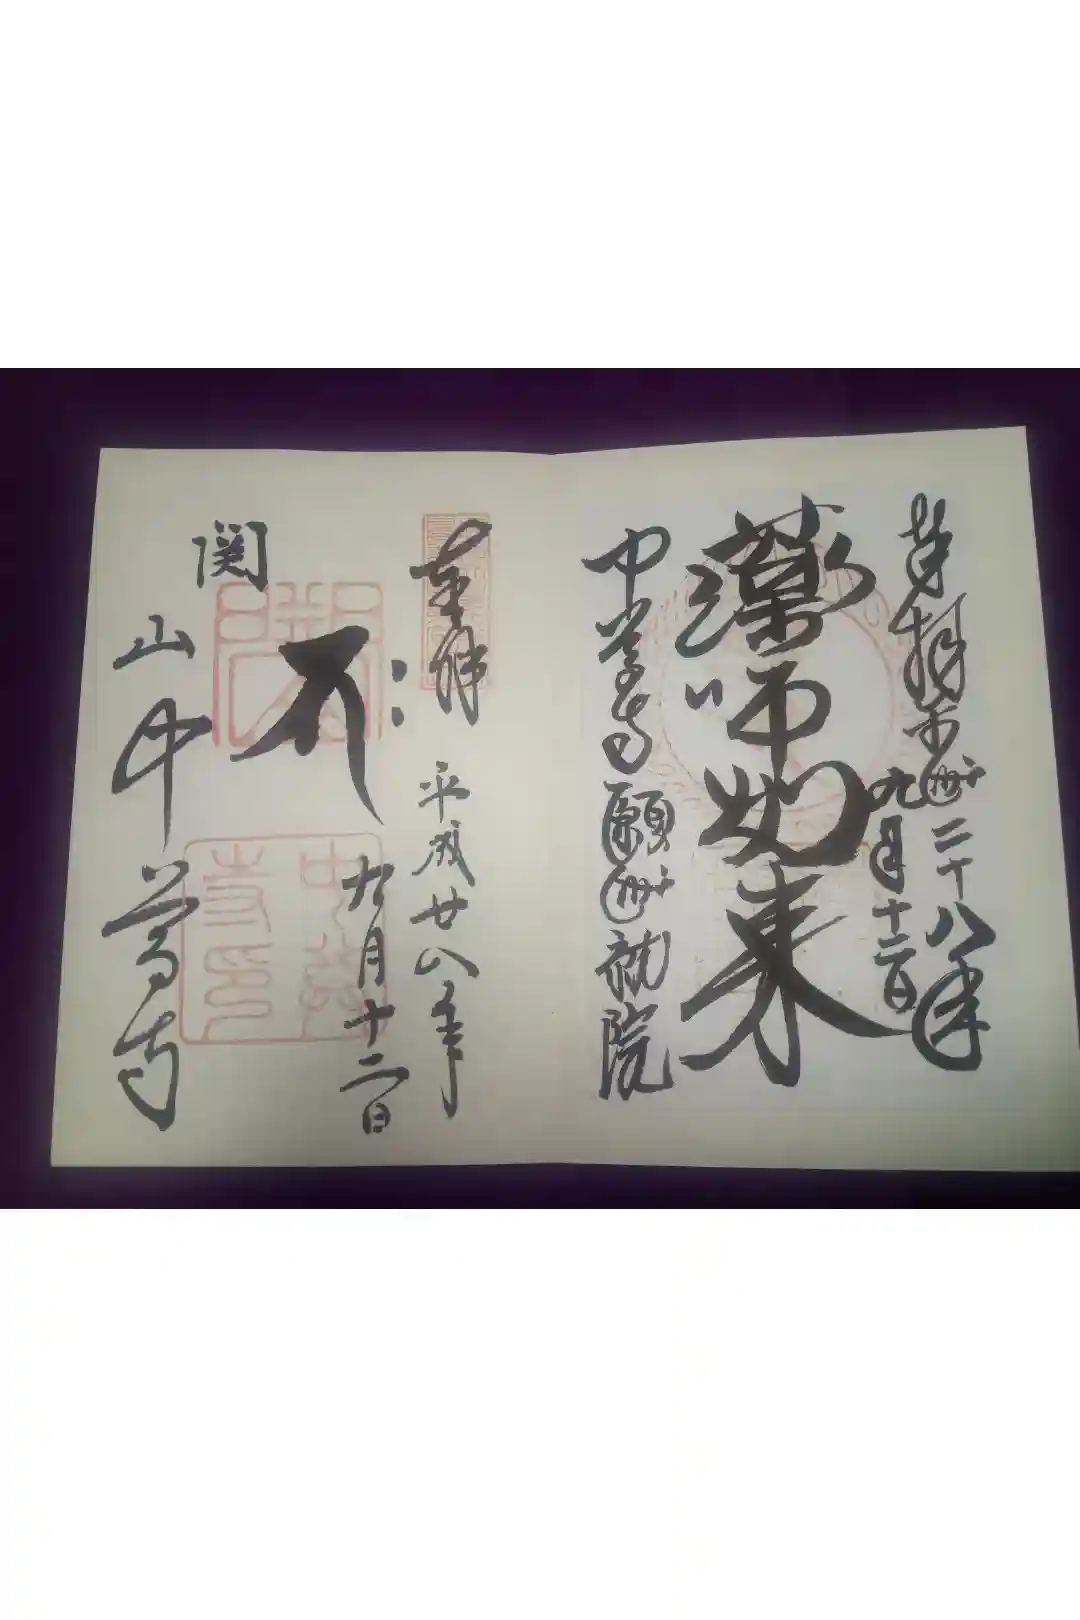 奉拝平成二十八年
九月十二日
薬師如来
中尊寺願成就院
奉拝
平成廿八年
九月十二日
関山中尊寺
中尊寺印